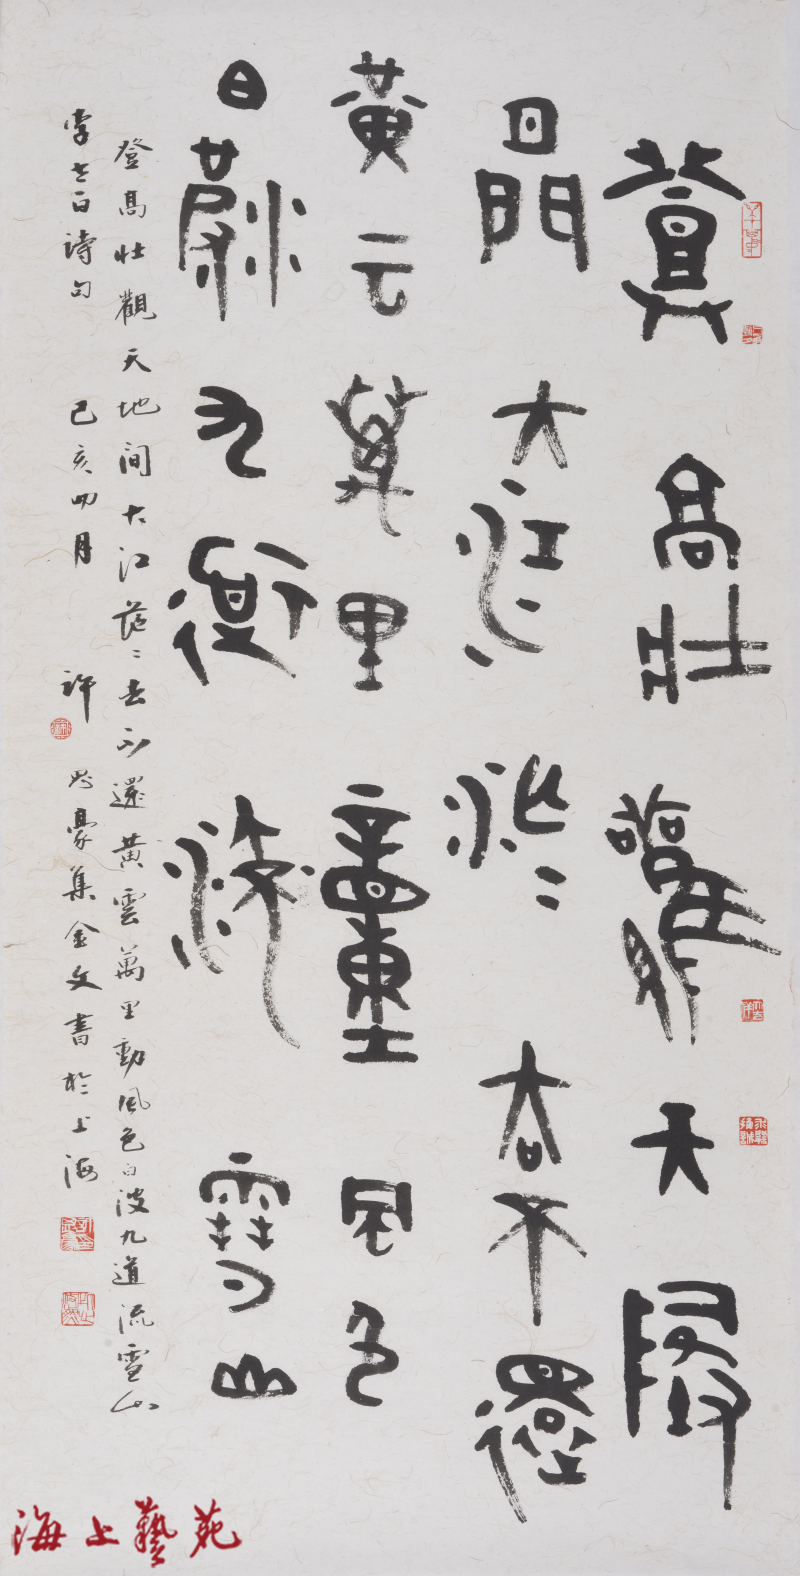 登高壯觀天地
間大江茫〻去不還
黃云萬里動風色
白波九道流雪山
登高壯觀天地間大江茫〻去不還黃雲萬里動風色白波九道流雪山
李太白詩句 己亥四月 許思豪集金文書於上海
海上藝苑